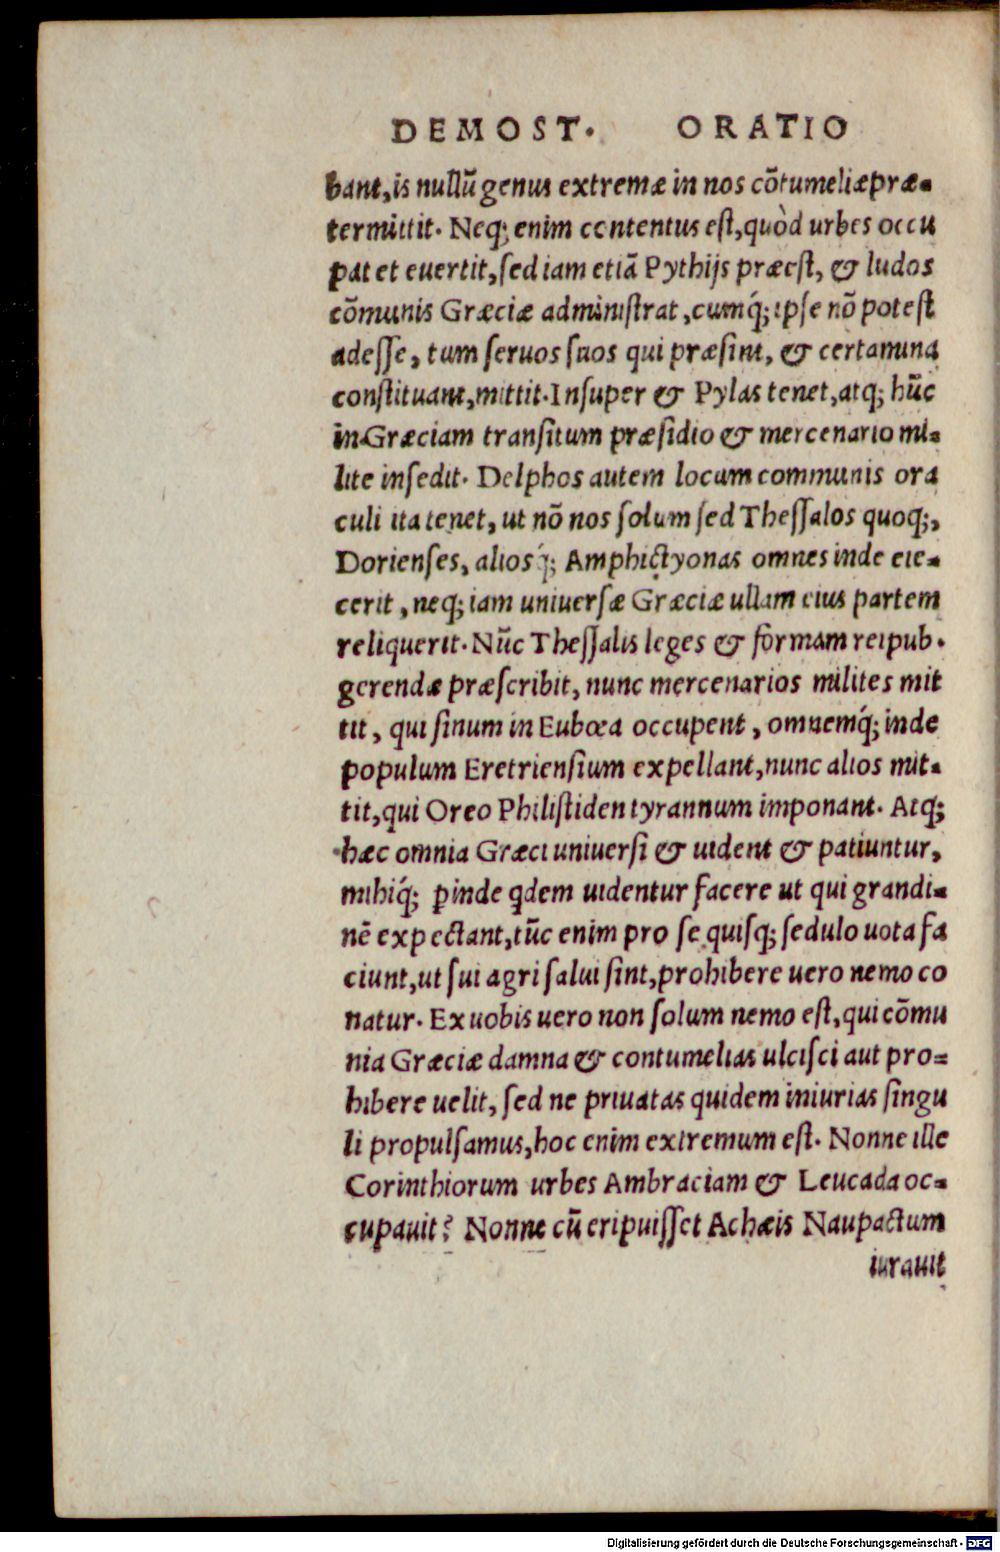 DEMOST. ORATIO
bant, is nullū genus extremæ in nos cōtumeliæ præ-
termittit. Neq; enim contentus est, quòd urbes occu
pat et euertit, sed iam etiā Pythijs præest, & ludos
cōmunis Græciæ administrat, cumq́; ipse nō potest
adesse, tum seruos suos qui præsint, & certamina
constituant, mittit. Insuper & Pylas tenet, atq; hūc
in Græciam transitum præsidio & mercenario mi-
lite insedit. Delphos autem locum communis ora
culi ita tenet, ut nō nos solum sed Thessalos quoq;,
Dorienses, aliosq́; Amphictyonas omnes inde eie-
cerit, neq; iam uniuersæ Græciæ ullam eius partem
reliquerit. Nūc Thessalis leges & formam reipub.
gerendæ præscribit, nunc mercenarios milites mit
tit, qui sinum in Eubœa occupent, omnemq́; inde
populum Eretriensium expellant, nunc alios mit-
tit, qui Oreo Philistiden tyrannum imponant. Atq;
hæc omnia Græci uniuersi & uident & patiuntur,
mihiq́; ꝑinde qdem uidentur facere ut qui grandi-
nē expectant, tūc enim pro se quisq; sedulo uota fa
ciunt, ut sui agri salui sint, prohibere uero nemo co
natur. Ex uobis uero non solum nemo est, qui cōmu
nia Græciæ damna & contumelias ulcisci aut pro-
hibere uelit, sed ne priuatas quidem iniurias singu
li propulsamus, hoc enim extremum est. Nonne ille
Corinthiorum urbes Ambraciam & Leucada oc-
cupauit? Nonne cū eripuisset Achæis Naupactum
iurauit
Digitalisierung gefördert durch die Deutsche Forschungsgemeinschaft - DFG